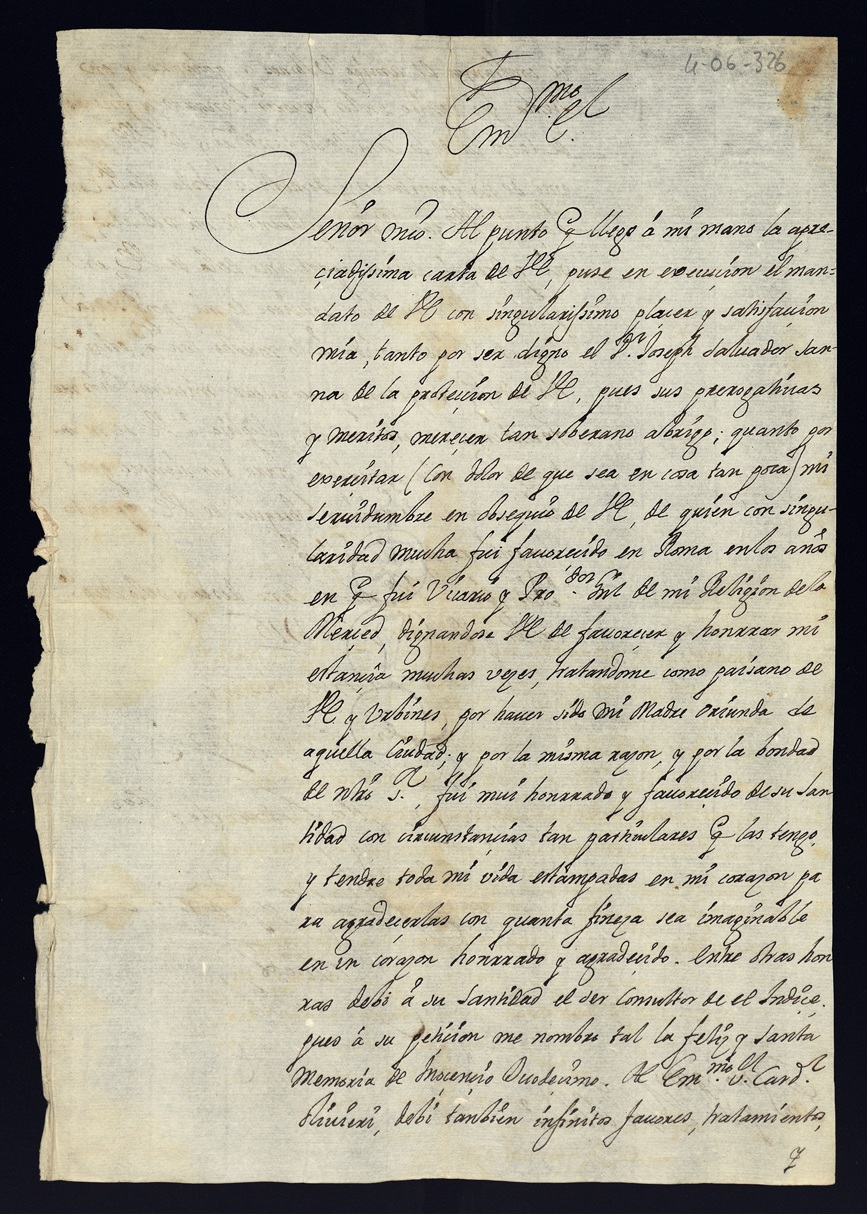 4-06-326
Em.mo
Señor mio. Al punto q llego à mi mano la apre-
ciadissima carta de VE, puse en execucion el man-
dato de VE con singularissimo placer y satisfacion
mia, tanto por ser digno el Dn. Joseph Salvador San-
na de la proteccion de VE, pues sus prerogativas
y meritos, merecen tan soberano abrigo; quanto por
exercitar (con dolor de que sea en cosa tan poca) mi
servidumbre en obsequio de VE, de quien con singu-
laridad mucha fui favorecido en Roma en los años
en q fui Vicario y Pro.dor Gnl de mi Religion de la
Merced, dignandose VE de favorecer y honrrar mi
estancia muchas vezes, tratandome como paisano de
VE y Urbines, por haver sido mi Madre oriunda de
aquella Ciudad; y por la misma razon, y por la bondad
de nro s.r, fui mui honrrado y favorecido de su San
tidad con circunstancias tan particulares q las tengo,
y tendre toda mi vida estampadas en mi corazon pa
ra agradecerlas con quanta fineza sea imaginable
en un corazon honrrado y agradecido. Entre otras hon
ras debi à su Santidad el ser Consultor de el Indice,
pues à su peticion me nombro tal la feliz y santa
Memoria de Inocencio Duodecimo. Al Em.mo Card.l
Olivieri, debi tambien infinitos favores, tratamientos,
y